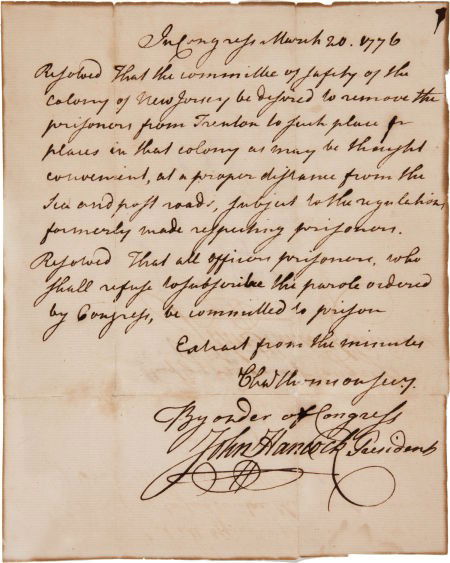 In Congress March 20. 1776
Resolved That the committee of safety of the
colony of New Jersey be desired to remove the
prisoners from Trenton to such place or
places in that colony as may be thought
convenient, at a proper distance from the
Sea and post roads, subject to the regulations
formerly made respecting prisoners.
Resolved That all officers prisoners, who
shall refuse to subscribe the parole ordered
by Congress, be committed to prison
Extract from the minutes
Chas Thomson secy.
By order of Congress
John Hancock President